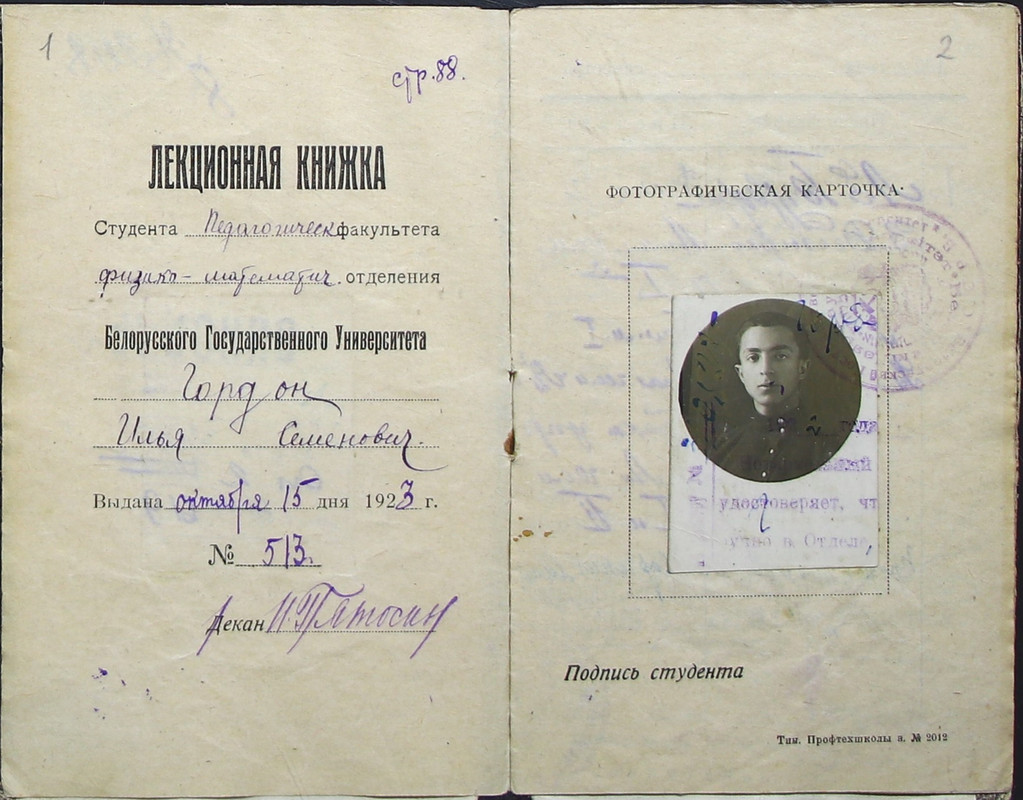 1
стр. 88.
ЛЕКЦИОННАЯ КНИЖКА
Студента Педагогическ факультета
физико-математич. отделения
Белорусского Государственного Университета
Гордон
Илья Семенович.
Выдана октября 15 дня 1923 г.
№ 513.
Декан
2
ФОТОГРАФИЧЕСКАЯ КАРТОЧКА·
2 года
удостоверяет, чт
в Отделе,
Подпись студента
Тип. Профтехшколы а. № 2012